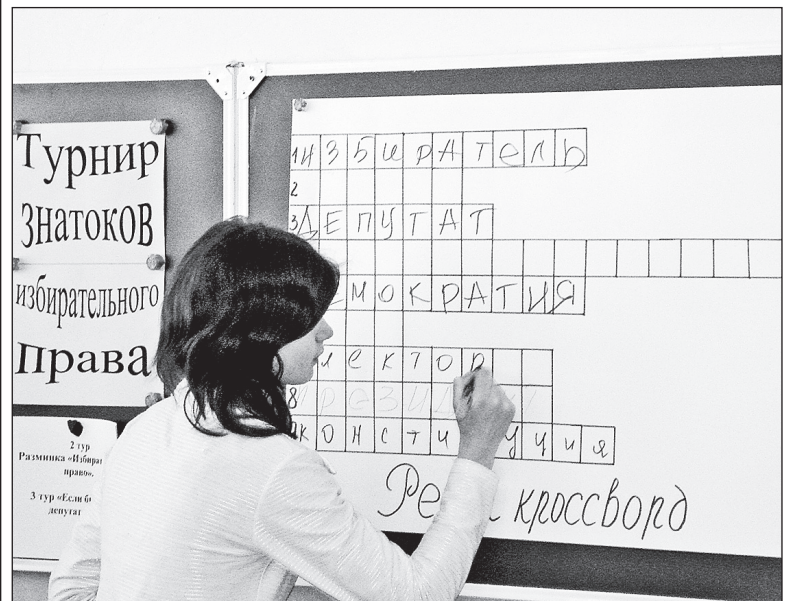 Турнир
знатоков
избирательного
права
2 тур
право».
3 тур «Если
депутат
1 ИЗБИРАТЕЛЬ
2
3 ДЕПУТАТ
МОКРАТИЯ
лектор
8
КОНСТИ УЦИЯ
кроссворд